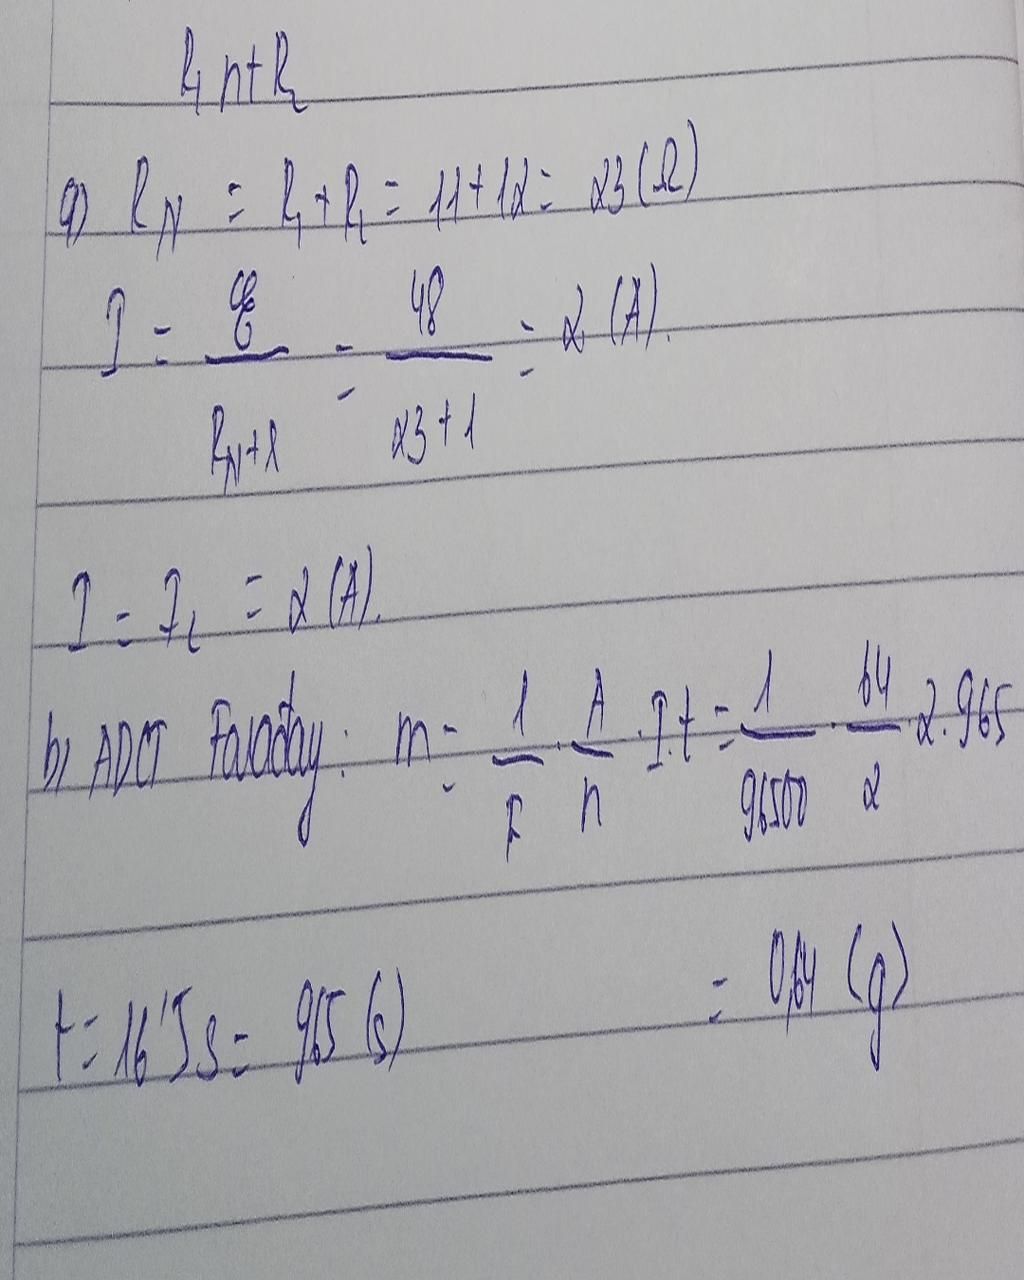 R₁ nt R₂
a) R_N = R₁ + R₂ = 11 + 12 = 23 (Ω)
I = ξ / (R_N + r) = 48 / (23 + 1) = 2 (A).
I = I₂ = 2 (A).
b) ADCT Faraday: m = 1/F . A/n . I.t = 1/96500 . 64/2 . 2.965
t = 16'5s = 965 (s) = 0,64 (g)